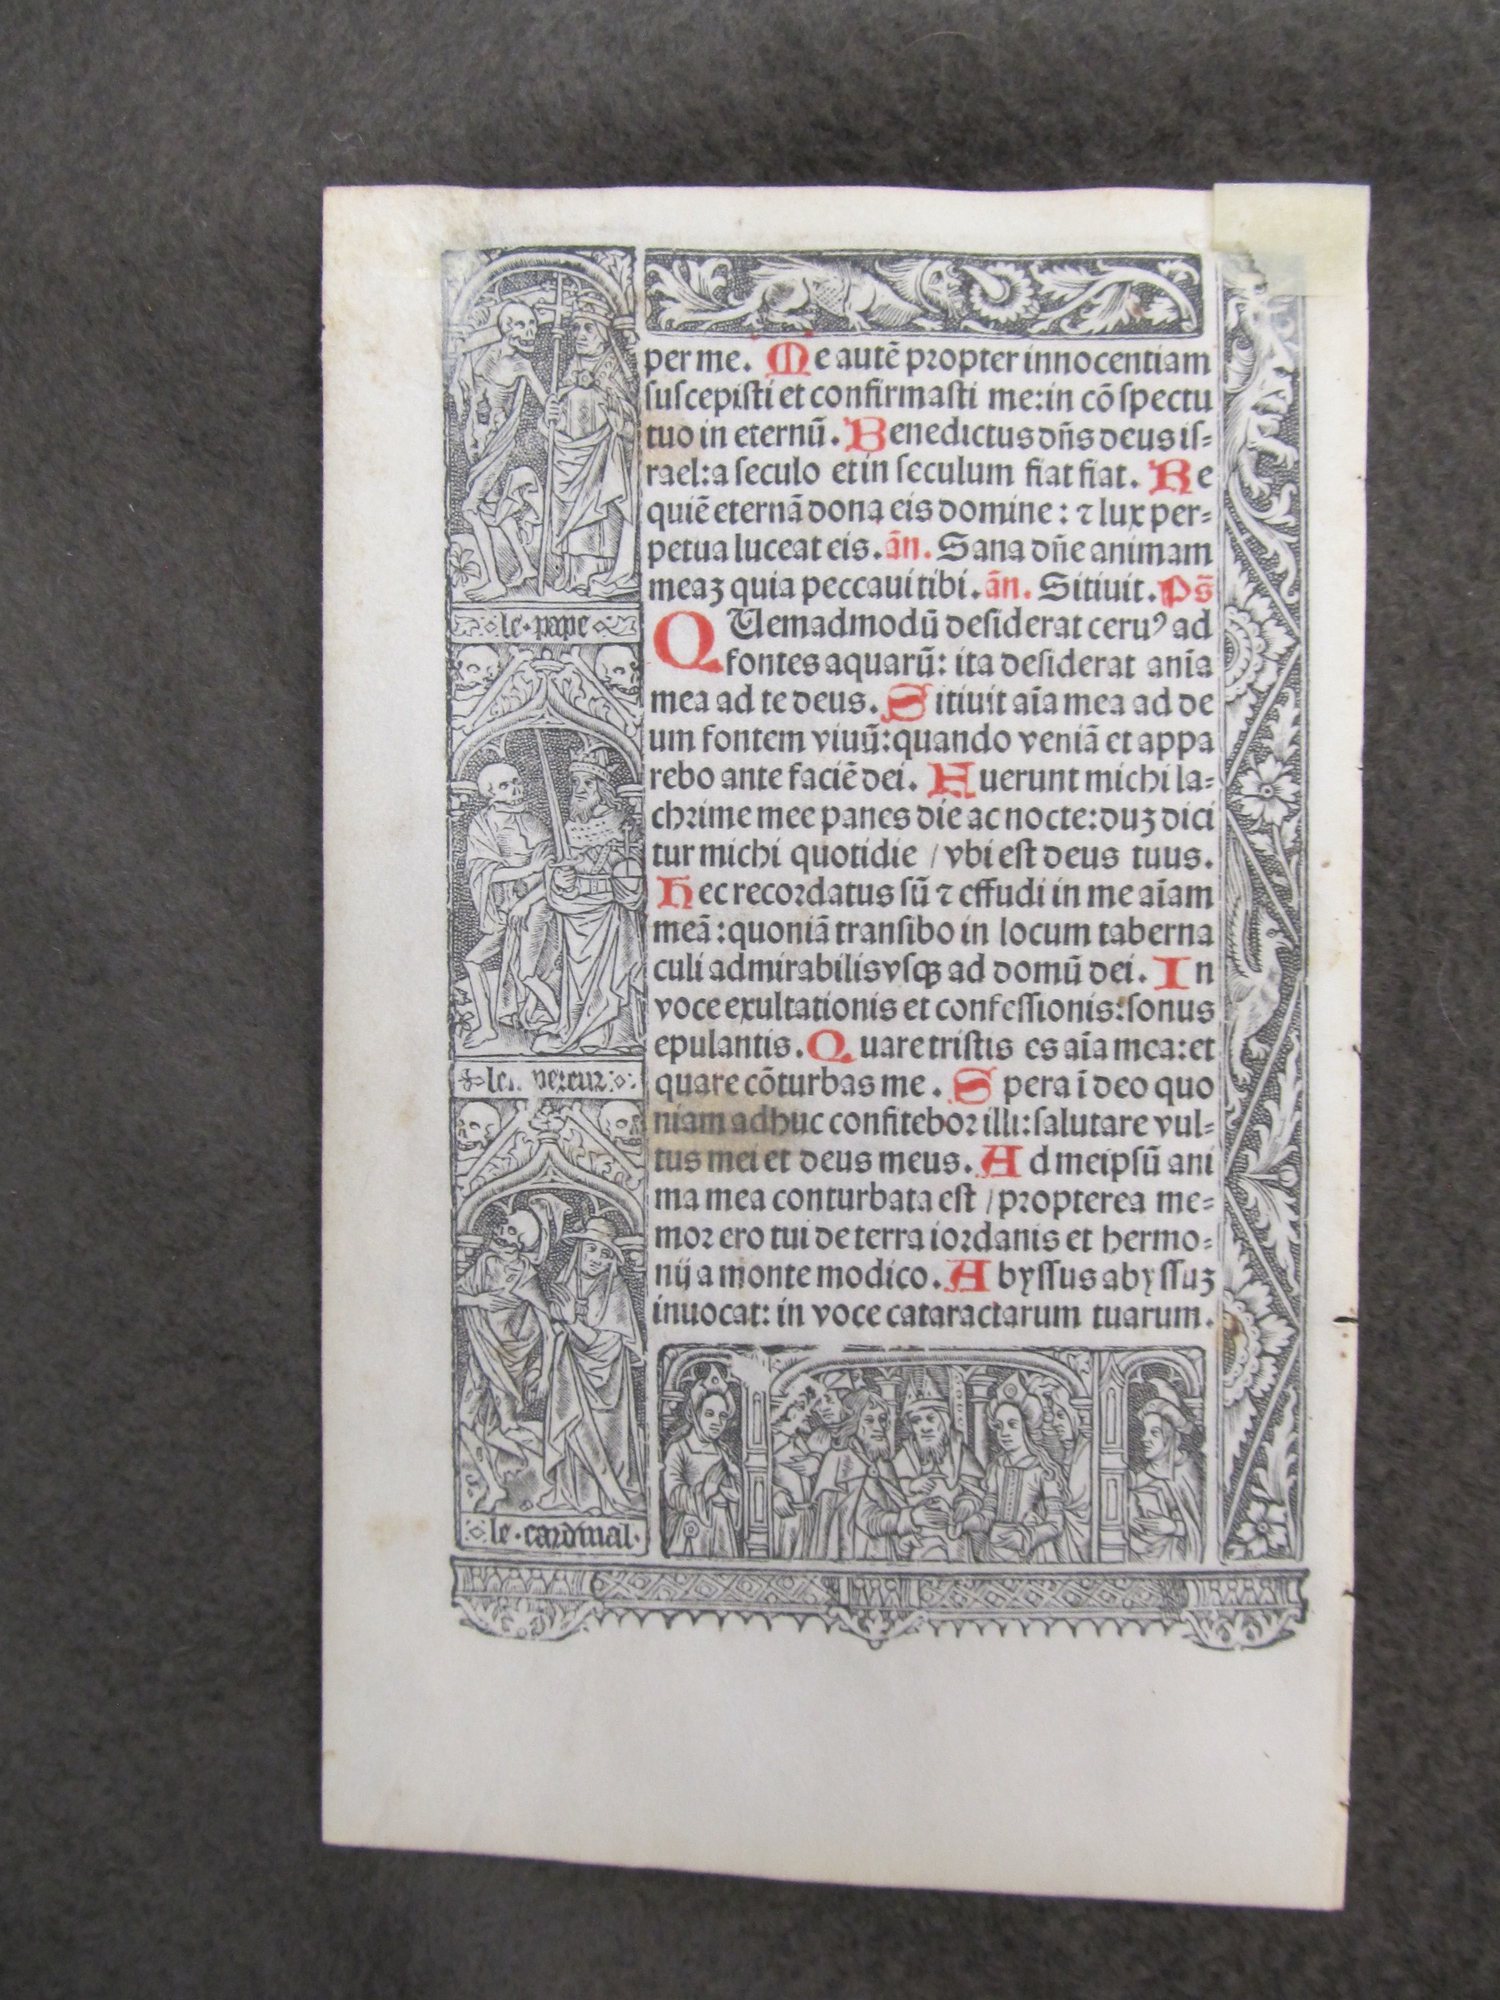 per me. Me autē propter innocentiam
suscepisti et confirmasti me: in cō spectu
tuo in eternū. Benedictus dñs deus is=
rael: a seculo et in seculum fiat fiat. Re
quiē eternā dona eis domine: ⁊ lux per=
petua luceat eis. ān. Sana dñe animam
meaꝫ quia peccaui tibi. ān. Sitiuit. Ps̄
QUemadmodū desiderat ceruꝰ ad
fontes aquarū: ita desiderat anīa
mea ad te deus. Sitiuit aīa mea ad de
um fontem viuū: quando veniā et appa
rebo ante faciē dei. Fuerunt michi la=
chrime mee panes die ac nocte: duꝫ dici
tur michi quotidie / vbi est deus tuus.
Hec recordatus sū ⁊ effudi in me aīam
meā: quoniā transibo in locum taberna
culi admirabilis vsqꝫ ad domū dei. In
voce exultationis et confessionis: sonus
epulantis. Quare tristis es aīa mea: et
quare cōturbas me. Spera ī deo quo
niam adhuc confitebor illi: salutare vul=
tus mei et deus meus. Ad meipsū ani
ma mea conturbata est / propterea me=
mor ero tui de terra iordanis et hermo=
nij a monte modico. Abyssus abyssuꝫ
inuocat: in voce cataractarum tuarum.
le · pape
le · cardinal ·